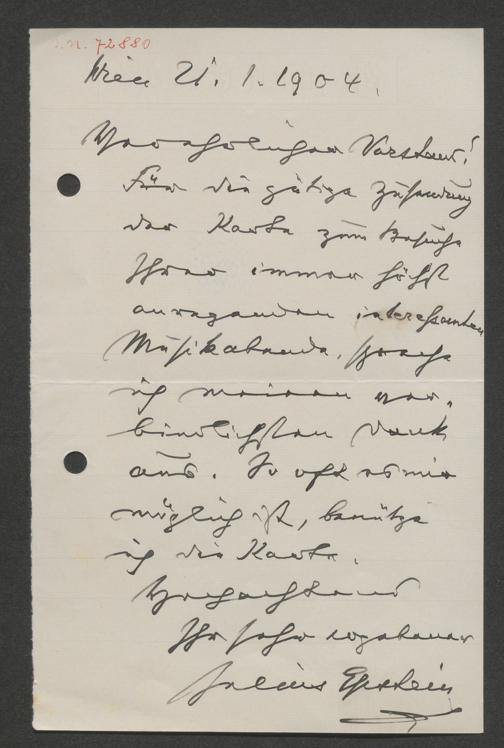 I.N. 72880
Wien 21. 1. 1904.
Verehrlicher Vorstand!
Für die gütige Zusendung
der Karte zum Besuche
Ihrer immer höchst
anregenden interessanten
Musikabende, spreche
ich meinen ver-
bindlichsten Dank
aus. So oft es mir
möglich ist, benütze
ich die Karte.
Hochachtend
Ihr sehr ergebener
Julius Epstein